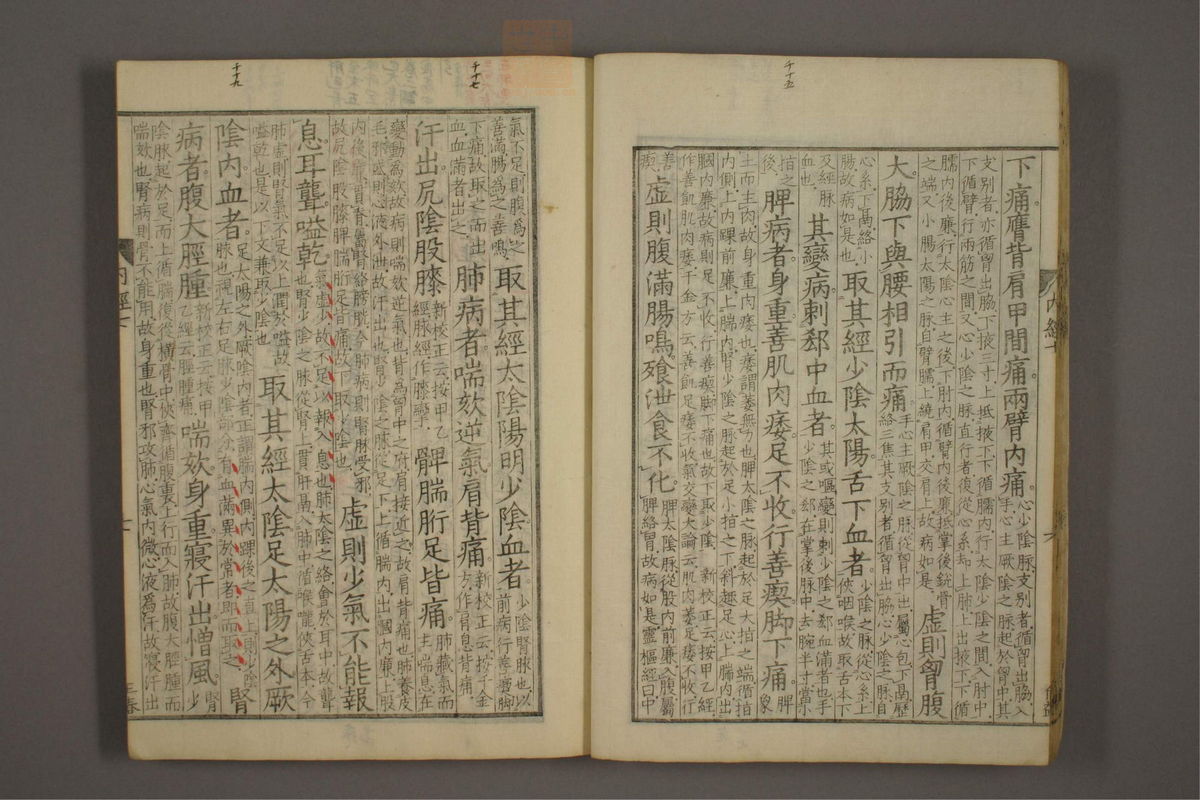 千十五
下痛膺背肩甲間痛兩臂内痛心少陰脉支別者循胷出脇入手心主厥陰之脉起於胷中其
支別者亦循胷出脇下掖三寸上抵掖下下循臑内行太陰少陰之間入肘中
下循臂行兩筋之間又心少陰之脉直行者復從心系却上肺上出掖下下循
臑内後廉行太陰心主之後下肘内循臂内後廉抵掌後銳骨之端又小腸太陽之脉自臂臑上繞肩甲交肩上故病如是虛則胷腹
大脇下與腰相引而痛手心主厥陰之脉從胷中出屬心包下膈歷絡三焦其支別者循胷出脇心少陰之脉自
心系下膈絡小腸故病如是也取其經少陰太陽舌下血者少陰之脉從心系上俠咽喉故取舌本下
及經脉血也其變病刺郄中血者其或嘔變則刺少陰之郄血滿者也手少陰之郄在掌後脉中去腕半寸當小
指之後脾病者身重善肌肉痿足不收行善瘈脚下痛脾象
土而主肉故身重肉痿也痿謂萎無力也脾太陰之脉起於足大指之端循指
内側上内踝前廉上腨内腎少陰之脉起於足小指之下斜趣足心上腨内出
膕内廉故病則足不收行善瘈脚下痛也故下取少陰 新校正云按甲乙經
作善飢肌肉痿千金方云善飢足痿不收氣交變大論云肌肉萎足痿不收行
善瘈虛則腹滿腸鳴飱泄食不化脾太陰脉從股内前廉入腹屬脾絡胃故病如是靈樞經曰中
千十七
氣不足則腹爲之善滿腸爲之善鳴取其經太陰陽明少陰血者少陰腎脉也以前病行善瘈脚
下痛故取之而出血血滿者出之肺病者喘欬逆氣肩背痛新校正云按千金方作肩息背痛
汗出尻陰股膝新校正云按甲乙經脉經作膝攣髀腨胻足皆痛肺藏氣而主喘息在
變動爲欬故病則喘欬逆氣也背爲胷中之府肩接近之故肩背痛也肺養皮
毛邪盛則心液外泄故汗出也腎少陰之脉從足下上循腨内出膕内廉上股
内後廉貫脊屬腎絡膀胱今肺病則腎脉受邪故尻陰股膝髀腨胻足皆痛故下取少陰也虛則少氣不能報
息耳聾嗌乾氣虛少故不足以報入息也肺太陰之絡會於耳中故聾也腎少陰之脉從腎上貫肝鬲入肺中循喉嚨俠舌本今
肺虛則腎氣不足以上潤於嗌故嗌乾也是以下文兼取少陰也取其經太陰足太陽之外厥
陰内血者足太陽之外厥陰内者正謂腨内側内踝後之直上則少陰脉也視左右足脉少陰部分有血滿異於常者即而取之腎
病者腹大脛腫新校正云按甲乙經云脛腫痛喘欬身重寢汗出憎風腎少
陰脉起於足而上循腨復從橫骨中俠齊循腹裏上行而入肺故腹大脛腫而
喘欬也腎病則骨不能用故身重也腎邪攻肺心氣内微心液爲汗故寢汗出
千十九
内經十